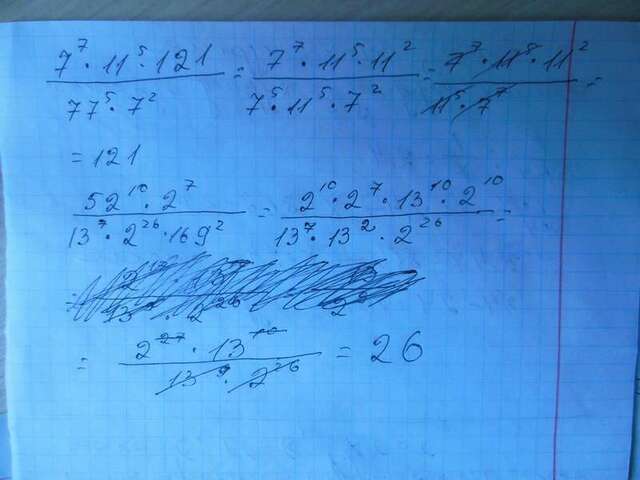 7⁷ · 11⁵ · 121 / 77⁵ · 7² = 7⁷ · 11⁵ · 11² / 7⁵ · 11⁵ · 7² = 7⁷ · 11⁵ · 11² / 11⁵ · 7⁷ =
= 121
52¹⁰ · 2⁷ / 13⁷ · 2²⁶ · 169² = 2¹⁰ · 2⁷ · 13¹⁰ · 2¹⁰ / 13⁷ · 13² · 2²⁶ =
= 2²⁷ · 13¹⁰ / 13⁹ · 2²⁶ = 26